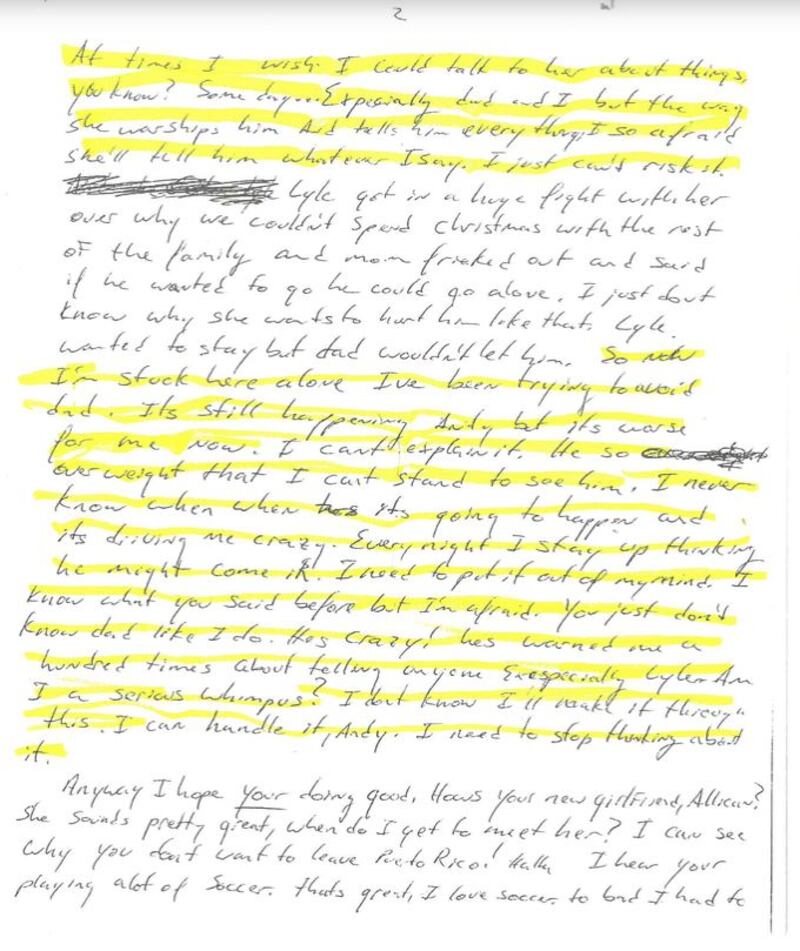 2
At times I wish I could talk to her about things,
you know? Some day... Especially dad and I but the way
she warships him and tells him everything, I so afraid
she'll tell him whatever I say. I just can't risk it.
Lyle got in a huge fight with her
over why we couldn't spend christmas with the rest
of the family and mom friaked out and said
if he wanted to go he could go alone. I just dont
know why she wants to hurt him like that. Lyle
wanted to stay but dad wouldn't let him. So now
I'm stuck here alone I've been trying to avoid
dad. Its still happening Andy but its worse
for me now. I cant explain it. He so
overweight that I cant stand to see him. I never
know when when its going to happen and
its driving me crazy. Every night I stay up thinking
he might come in. I need to put it out of my mind. I
know what you said before but I'm afraid. You just don't
know dad like I do. Hes crazy! hes warned me a
hundred times about telling anyone especially Lyle. Am
I a serious whimpus? I dont know I'll make it through
this. I can handle it, Andy. I need to stop thinking about
it.
Anyway I hope your doing good. Hows your new girlfriend, Allican?
She sounds pretty great, when do I get to meet her? I can see
why you dont want to leave Puerto Rico! Haha I hear your
playing alot of Soccer. thats great, I love soccer. to bad I had to